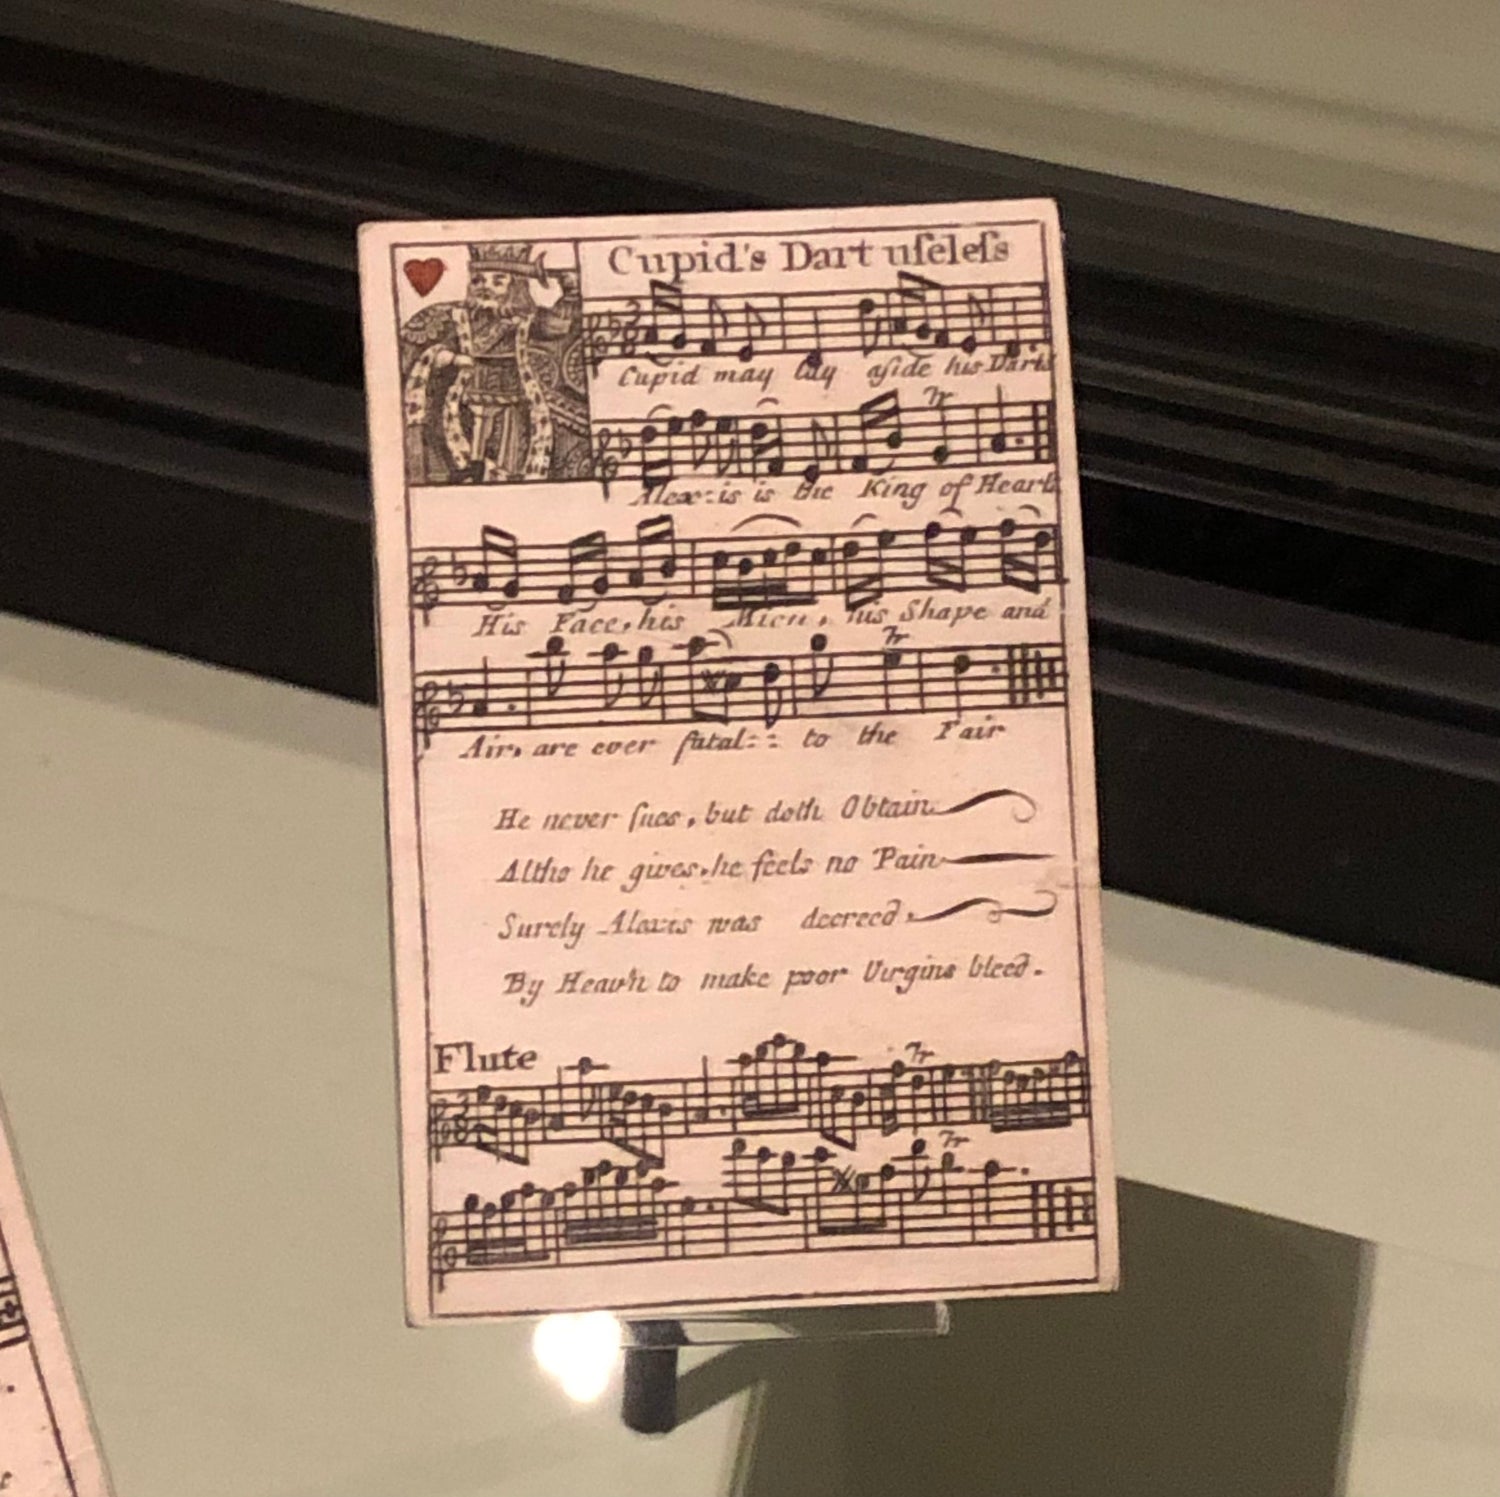 Cupid's Dart uſeleſs
Cupid may lay aſide his Darts
Alex::is is the King of Hearts
His Face, his Mien, his Shape and
Air, are ever fatal:: to the Fair
He never ſues, but doth Obtain
Altho he gives, he feels no Pain
Surely Alexis was decreed,
By Heav'n to make poor Virgins bleed.
Flute